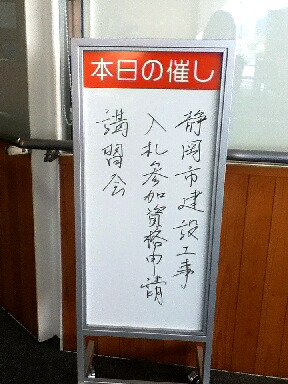 本日の催し
静岡市建設工事
入札参加資格申請
講習会